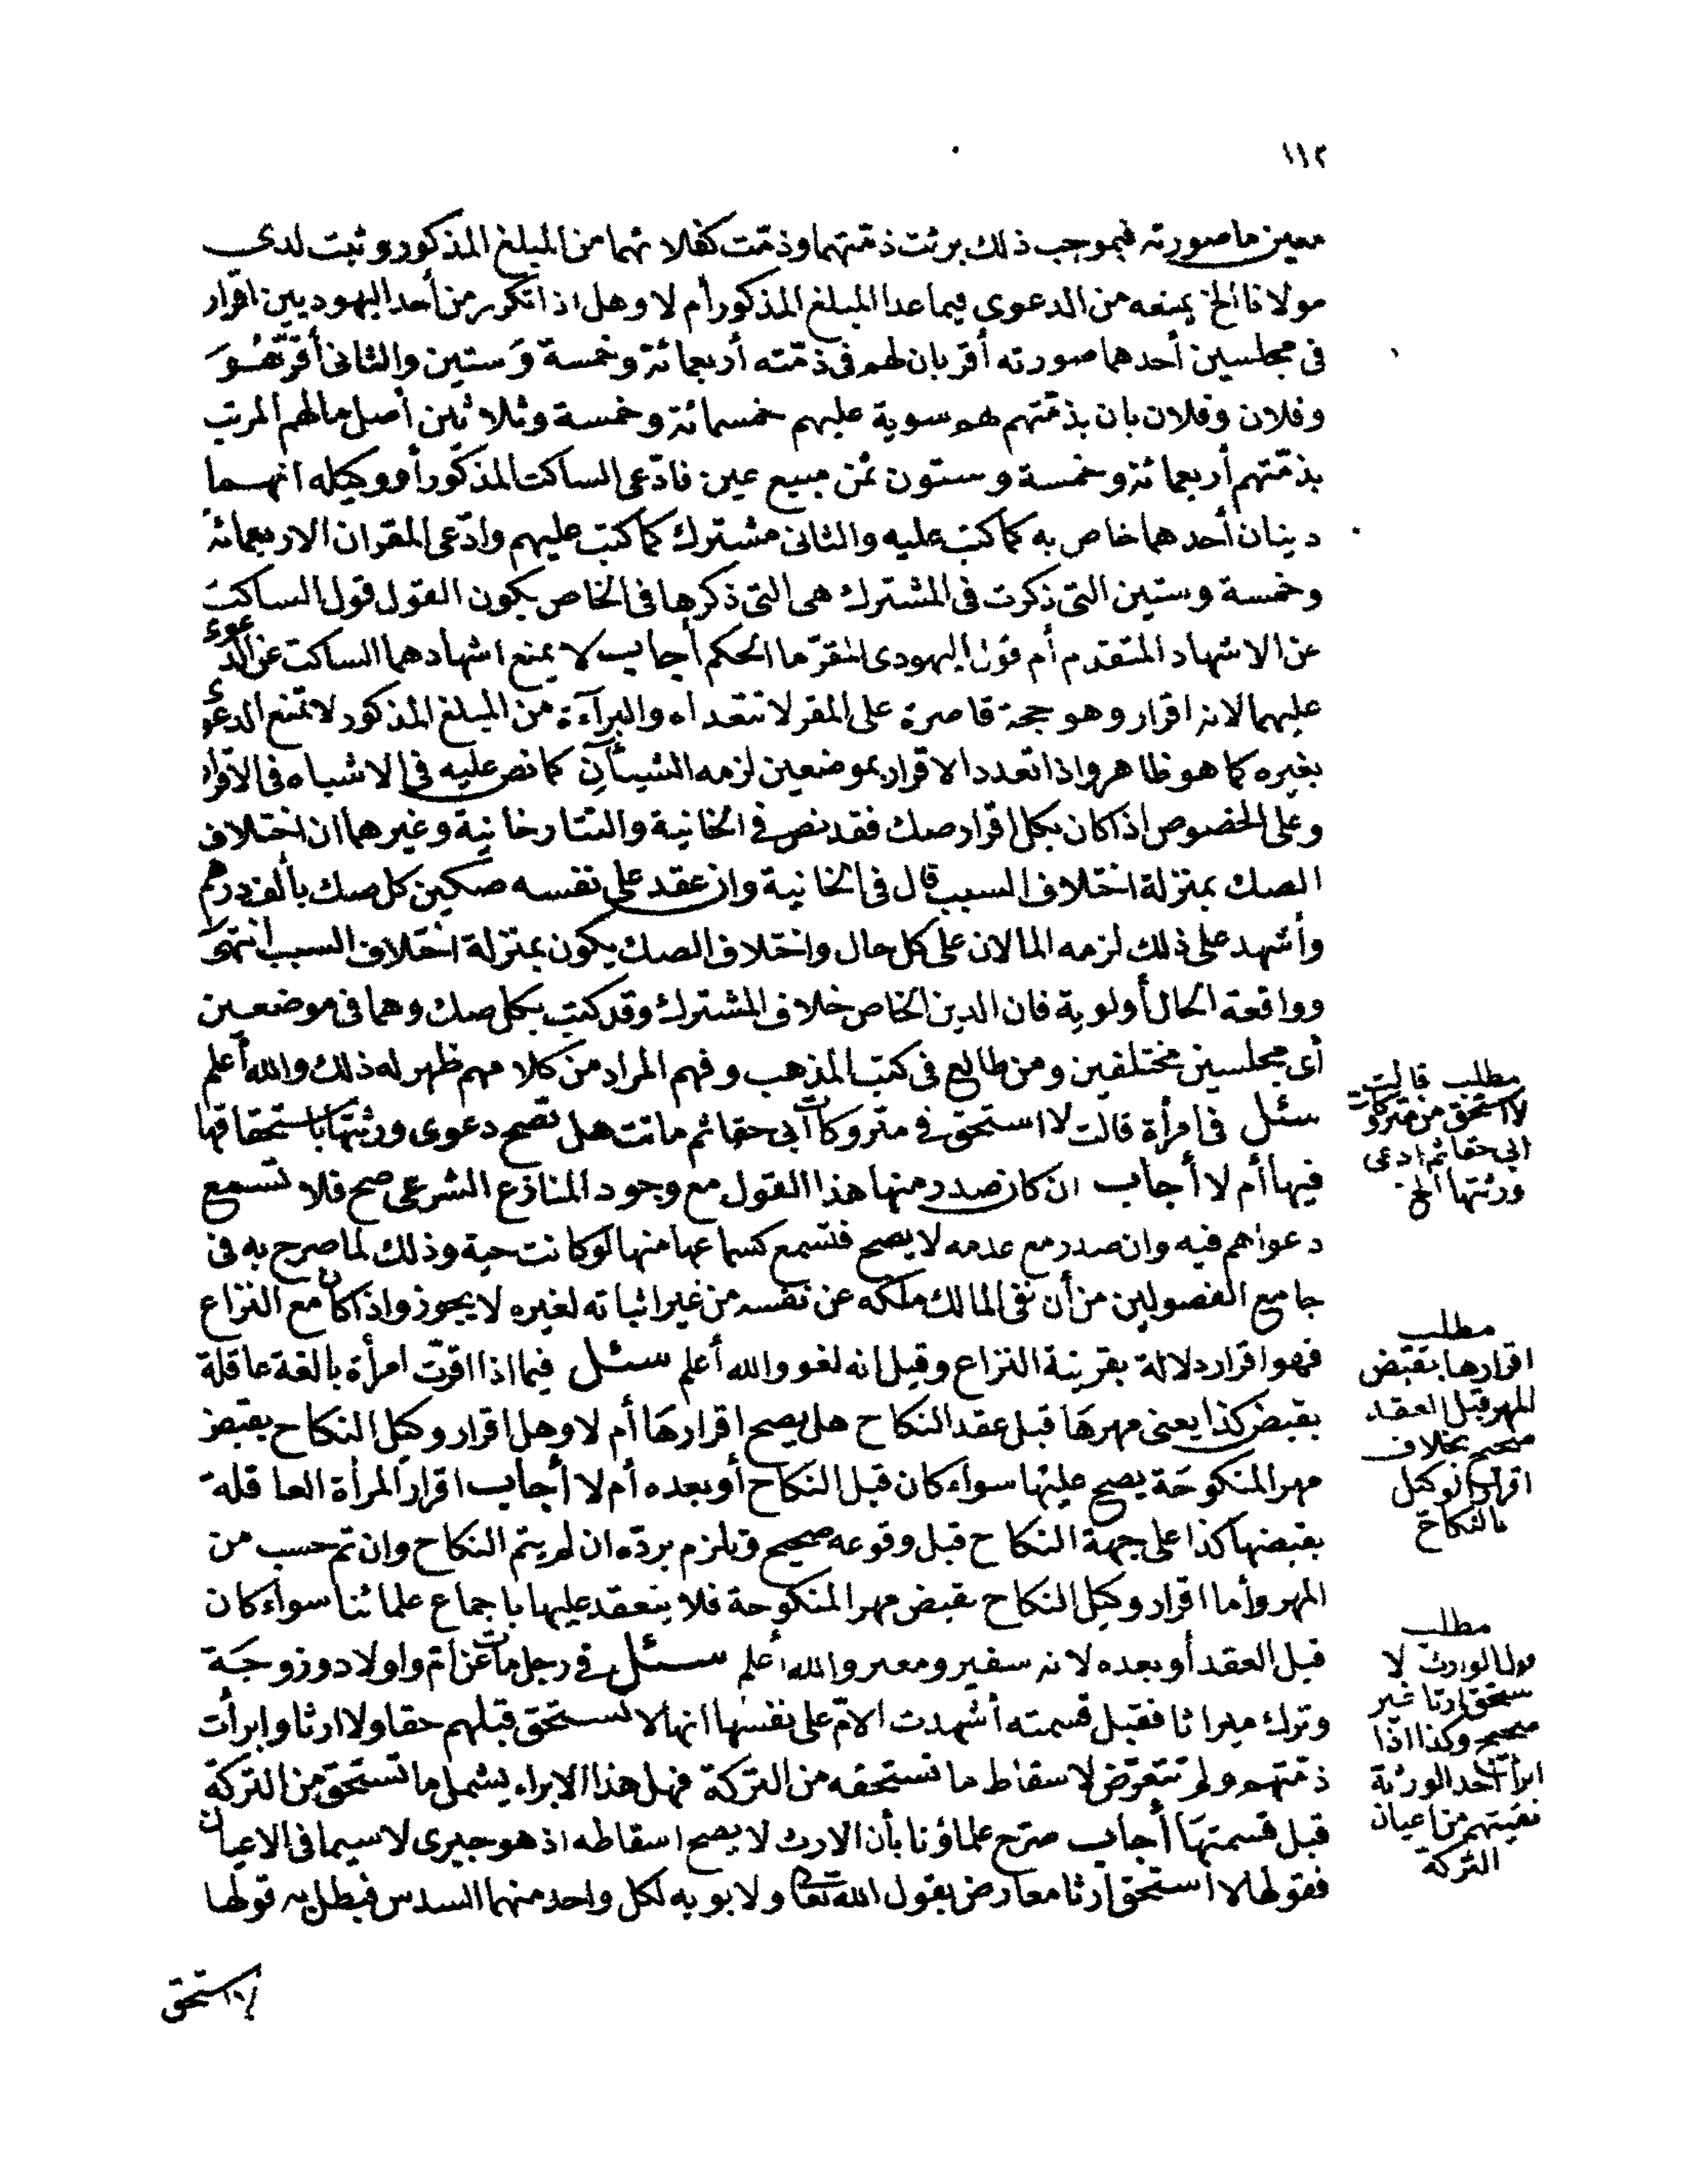 ١١٢
معين ما صورته فبموجب ذلك برئت ذمّتهما وذمّت كفلائهما من المبلغ المذكور وثبت لدى
مولانا الخ يمنعه من الدعوى فيما عدا المبلغ المذكور أم لا وهل اذا تكرر من أحد اليهوديين اقرار
فى مجلسين أحدهما صورته أقر بان لهم فى ذمّته أربعمائة وخمسة وَستين والثانى أقرّ هُوَ
وفلان وفلان بان بذمّتهم لهم سوية عليهم خمسمائة وخمسة وثلاثين أصل مالهم المرتب
بذمّتهم أربعمائة وخمسة وستون ثمن مبيع عين فادّعى الساكت المذكور أو وكيله انهما
دينان أحدهما خاص به كما كتب عليه والثانى مشترك كما كتب عليهم وادّعى المقر ان الاربعمائة
وخمسة وستين التى ذكرت فى المشترك هى التى ذكرها فى الخاص يكون القول قول الساكت
عن الاشهاد المتقدم أم قول اليهودى المقرّ ما الحكم أجاب لا يمنع اشهادهما الساكت عن الدعوى
عليهما لانه اقرار وهو حجة قاصرة على المقر لا تتعداه والبرآءة من المبلغ المذكور لا تمنع الدعوى
بغيره كما هو ظاهر واذا تعدد الاقرار بموضعين لزمه الشيآن كما نص عليه فى الاشباه فى الاقرار
وعلى الخصوص اذا كان بكل اقرار صك فقد نص فى الخانية والتتارخانية وغيرهما ان اختلاف
الصك بمنزلة اختلاف السبب قال فى الخانية وان عقد على نفسه صكين كل صك بألف درهم
وأشهد على ذلك لزمه المالان على كل حال واختلاف الصك يكون بمنزلة اختلاف السبب انتهى
وواقعة الحال أولوية فان الدين الخاص خلاف المشترك وقد كتب بكل صك وهما فى موضعين
أى مجلسين مختلفين ومن طالع فى كتب المذهب وفهم المراد من كلامهم ظهر له ذلك والله أعلم
سئل فى امرأة قالت لا استحق فى متروكات أبى حقا ثم ماتت هل تصح دعوى ورثتها باستحقاقها
فيها أم لا أجاب ان كان صدر منها هذا القول مع وجود المنازع الشرعى صح فلا تسمع
دعواهم فيه وان صدر مع عدمه لا يصح فتسمع كسماعها منها لو كانت حية وذلك لما صرح به فى
جامع الفصولين من أن نفى المالك ملكه عن نفسه من غير اثباته لغيره لا يجوز واذا كان مع النزاع
فهو اقرار دلالة بقرينة النزاع وقيل انه لغو والله أعلم سئل فيما اذا اقرّت امرأة بالغة عاقلة
بقبض كذا يعنى مهرهَا قبل عقد النكاح هل يصح اقرارهَا أم لا وهل اقرار وكيل النكاح بقبض
مهر المنكوحَة يصح عليها سواء كان قبل النكاح أو بعده أم لا أجاب اقرار المرأة العاقلة
بقبضها كذا على جهة النكاح قبل وقوعه صحيح ويلزم بردّه ان لم يتم النكاح وان تم حسب من
المهر وأما اقرار وكيل النكاح بقبض مهر المنكوحة فلا ينعقد عليها باجماع علمائنا سواء كان
قبل العقد أو بعده لانه سفير ومعبر والله أعلم سئل فى رجل مات عن ام واولاد وزوجَة
وترك ميراثا فقبل قسمته أشهدت الامّ على نفسها انها لا تستحق قبلهم حقا ولا ارثا وابرأت
ذمّتهم ولم تتعرّض لاسقاط ما تستحقه من التركة فهل هذا الابراء يشمل ما تستحق من التركة
قبل قسمتهَا أجاب صرّح علماؤنا بأن الارث لا يصح اسقاطه اذ هو جبرى لا سيما فى الاعيان
فقولها لا استحق ارثا معارض بقول الله تعالى ولابويه لكل واحد منهما السدس فبطل به قولها
لا استحق
مطلب قالت
لا استحق من متروكات
ابى حقا ثم ادعى
ورثتها الخ
مطلب
اقرارها بقبض
المهر قبل العقد
صحيح بخلاف
اقرار الوكيل
بالنكاح
مطلب
قول الوارث لا
ستحق ارثا غير
صحيح وكذا اذا
ابرأت أحد الورثة
بقيتهم من اعيان
التركة